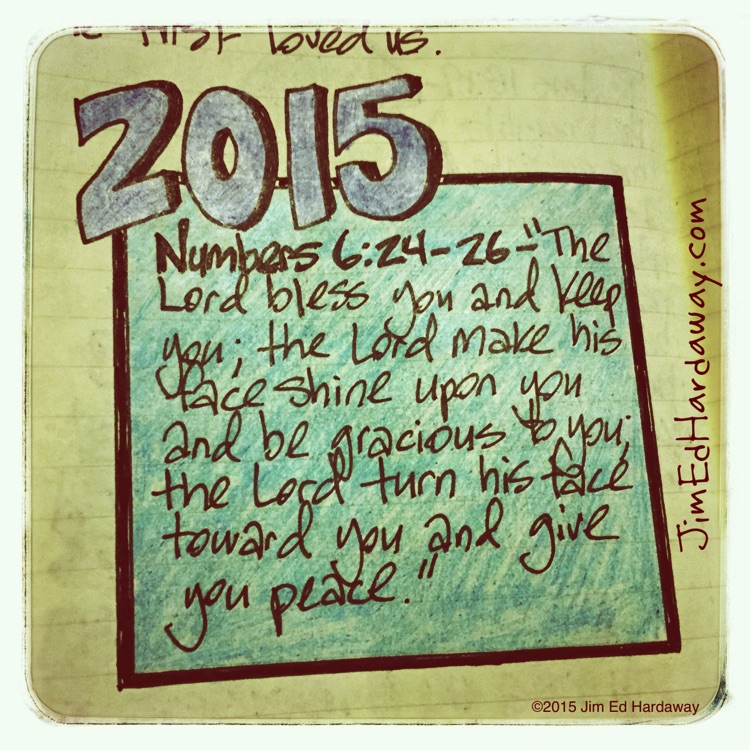 first loved us.
2015
Numbers 6:24-26-"The
Lord bless you and keep
you; the Lord make his
face shine upon you
and be gracious to you;
the Lord turn his face
toward you and give
you peace."
JimEdHardaway.com
©2015 Jim Ed Hardaway